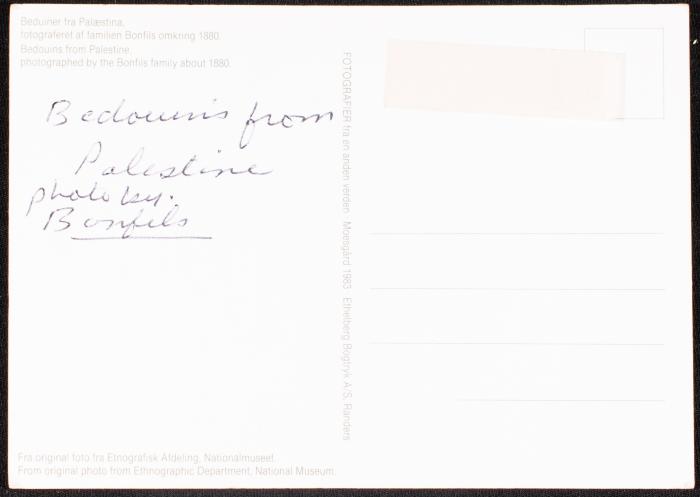 Beduiner fra Palæstina,
fotograferet af familien Bonfils omkring 1880.
Bedouins from Palestine,
photographed by the Bonfils family about 1880.
Bedouins from
Palestine
photo by:
Bonfils
FOTOGRAFIER fra en anden verden Moesgård 1983 Ethelberg Bogtryk A/S. Randers
Fra original foto fra Etnografisk Afdeling, Nationalmuseet.
From original photo from Ethnographic Department, National Museum.